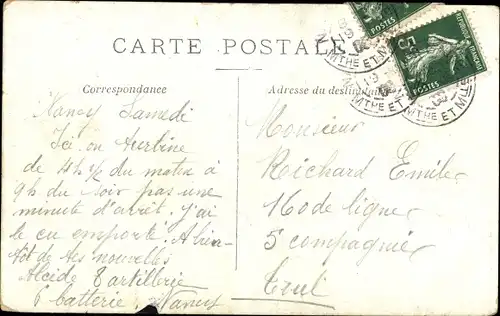 CARTE POSTALE
Correspondance
Nancy Samedi
Ici on turbine
de 4h½ du matin à
9h du soir pas une
minute d'arrêt. J'ai
le cu emporté. A bien-
tôt de tes nouvelles
Alcide artillerie
6 batterie, Nancy
Adresse du destinataire
Monsieur
Richard Emile
160 de ligne
5 compagnie
Toul
POSTES
5c
POSTES
REPUBLIQUE FRANÇAISE
MTHE ET M
MTHE ET M
MTHE ET MLLE